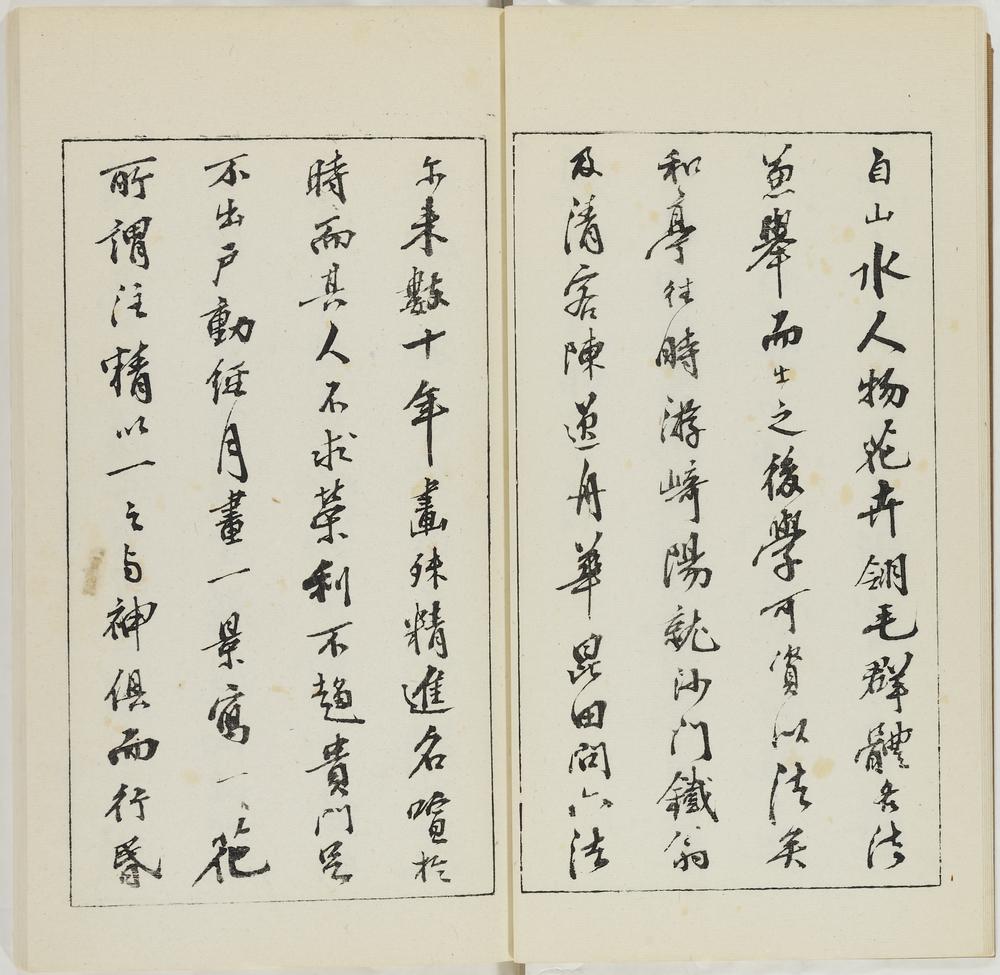 自山水人物花卉翎毛群體各法
兼舉而出之後學可資以法矣
和亭往時游崎陽就沙门鐵翁
及清客陳逸舟華昆田問六法
尓来數十年畫殊精進名喧於
時而其人不求榮利不趨貴门足
不出戶動經月畫一景寫一花
所謂注精以一之与神俱而行昏